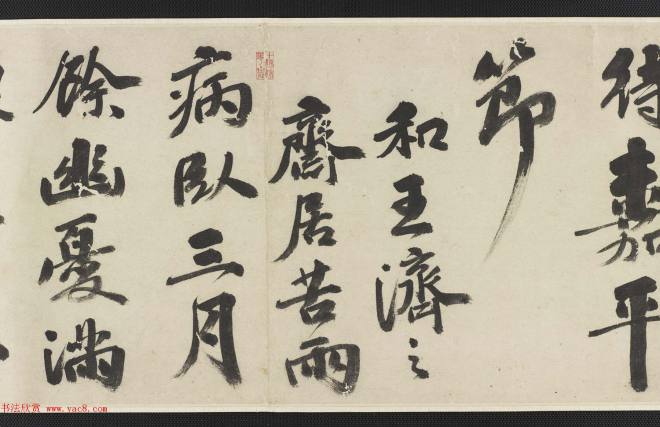 待嘉平
節
和王濟之
齋居苦雨
病臥三月
餘幽憂滿
书法欣赏 www.yac8.com